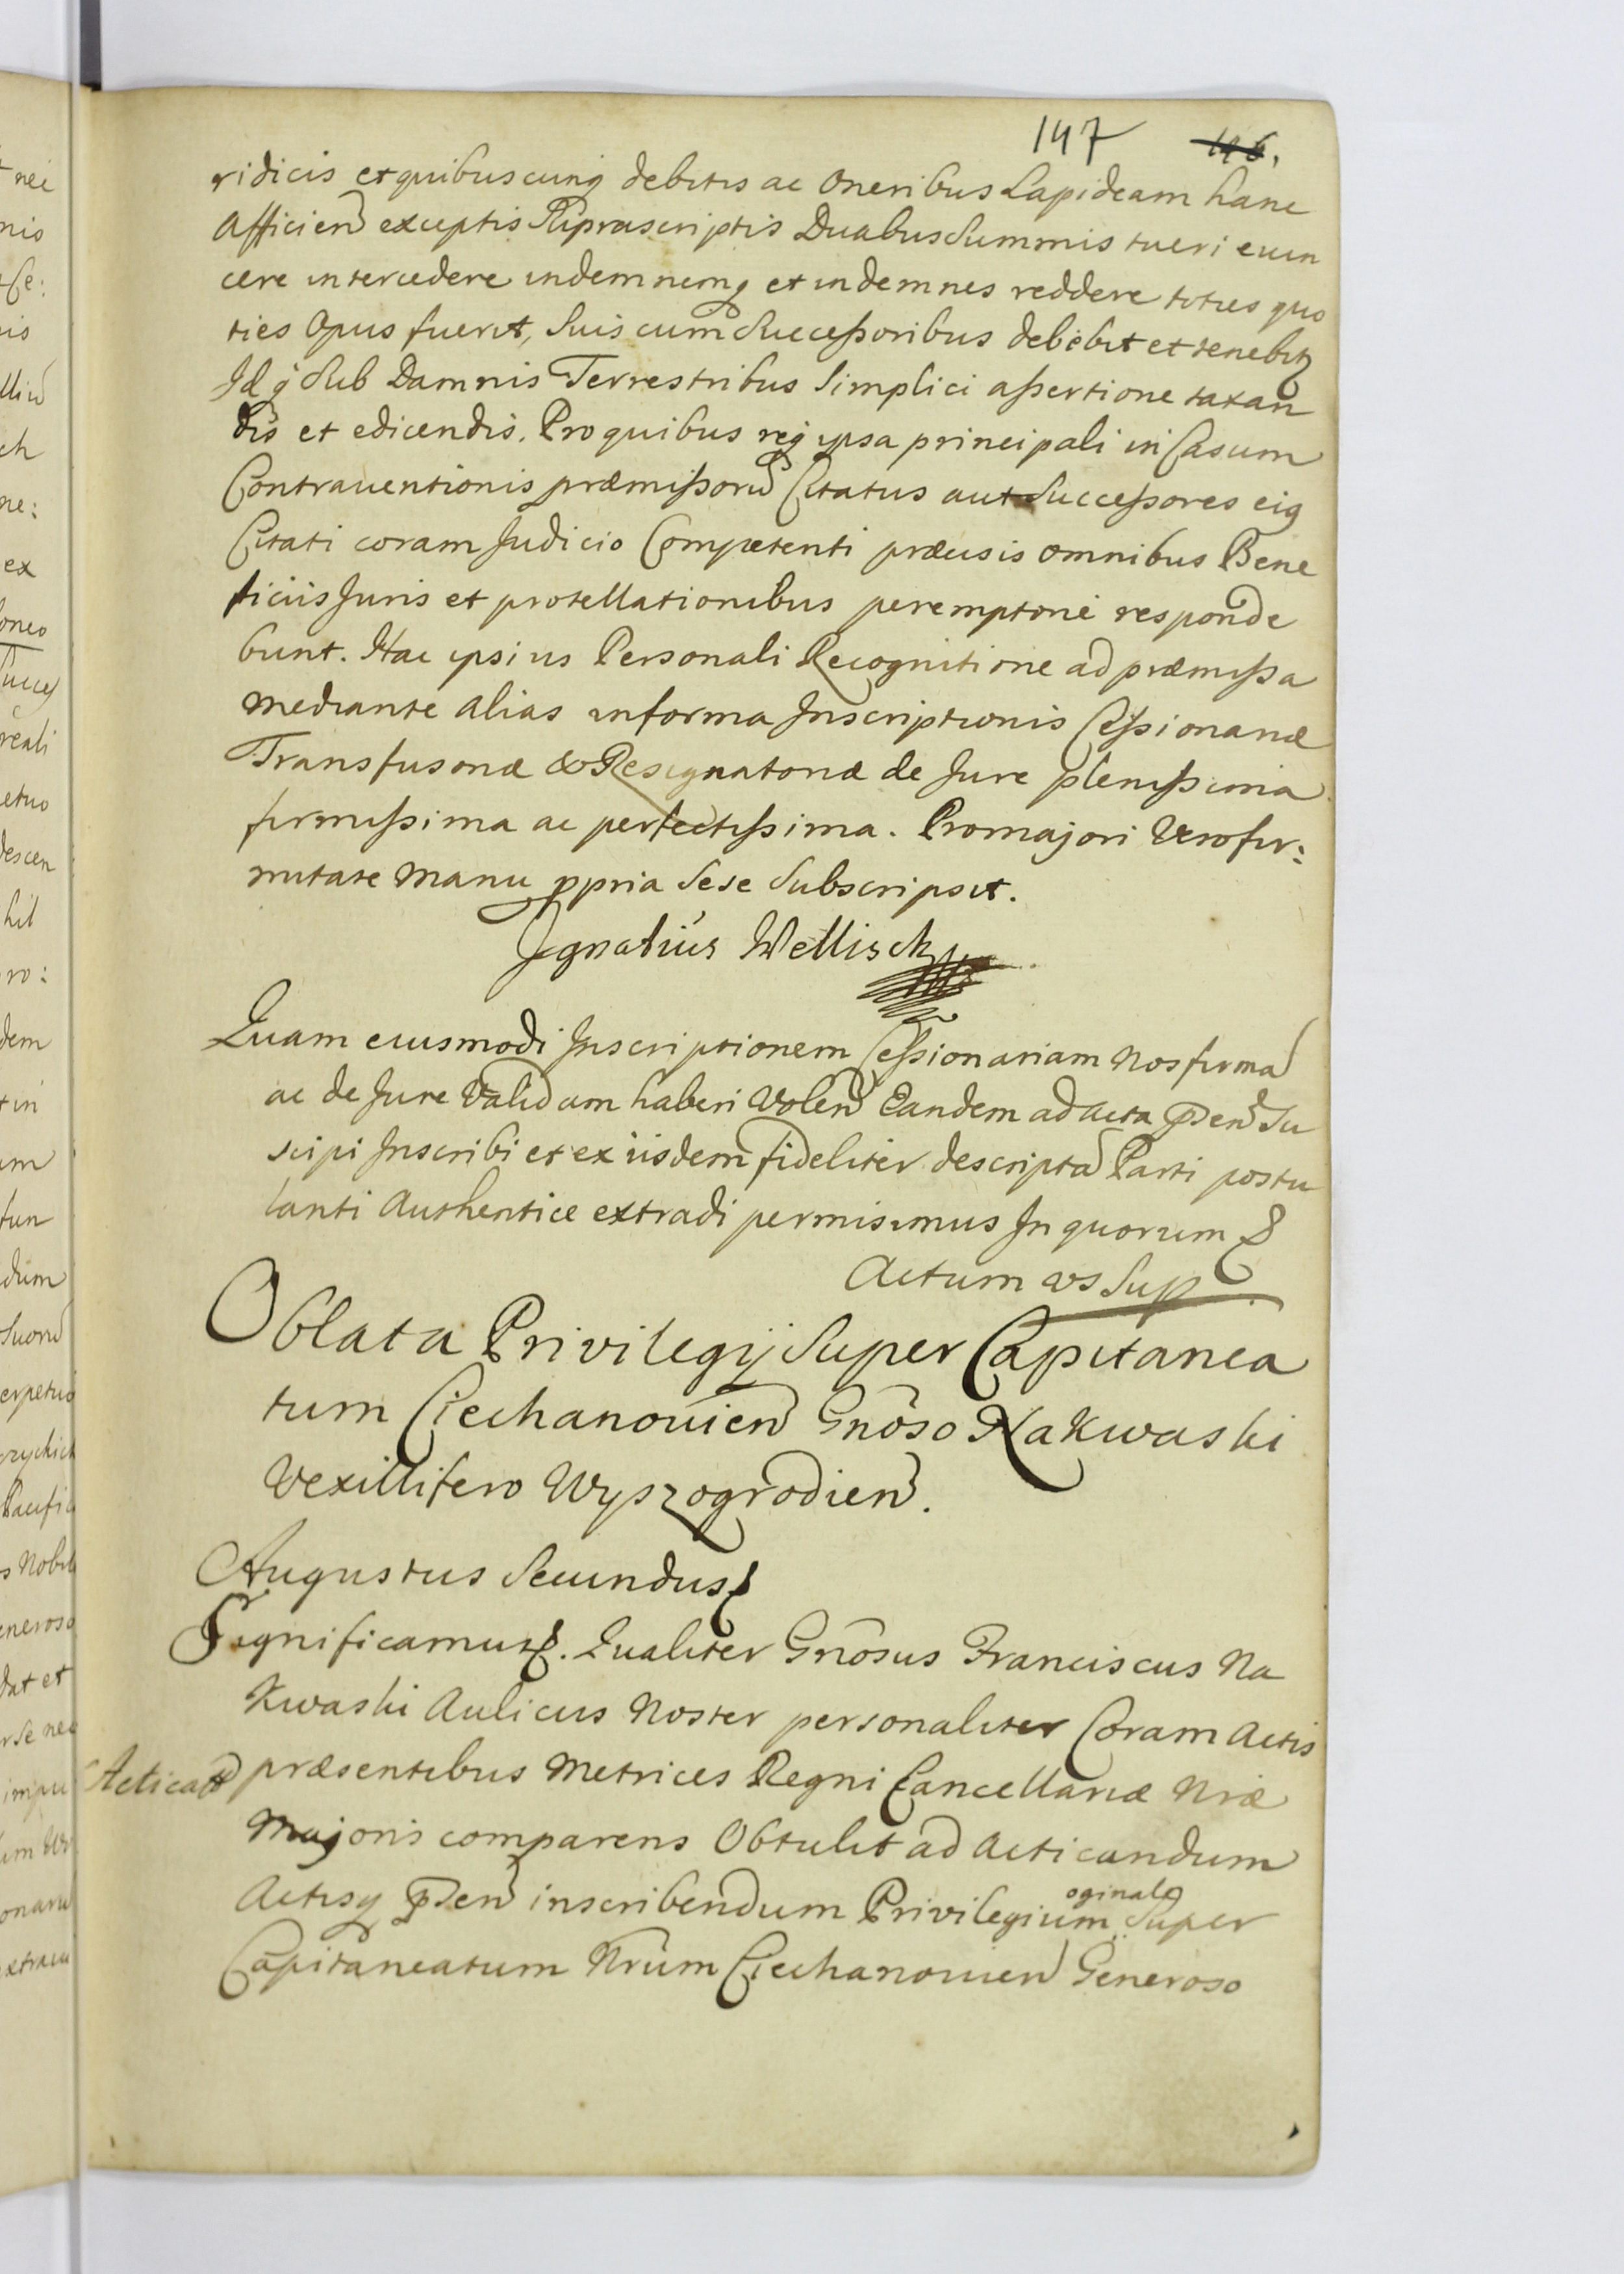 147 146.
ridicis et quibuscunq debitis ac Oneribus Lapideam hanc
Afficien exceptis Suprascriptis Duabus Summis tueri evin
cere intercedere indemnemq et indemnes reddere toties quo
ties Opus fuerit, Suis cum Successoribus debebit et tenebitz
Idq Sub Damnis Terrestribus Simplici assertione taxan
dis et edicendis. Pro quibus req ipsa principali in Casum
Contraventionis præmissorū Citatus aut Successores eig
Citati coram Judicio Competenti præcisis omnibus Bene
ficiis Juris et protellationibus peremptoriè responde
bunt. Hac ipsius Personali Recognitione ad præmissa
mediante alias in forma Inscriptionis Cessionariæ
Transfusoriæ & Resignatoriæ de Jure plenissima
firmissima ac perfectissima. Pro majori Vero fir:
mitate Manu ppria Sese Subscripsit.
Ignatius Wellisch
Quam eiusmodi Inscriptionem Cessionariam Nos firmā
ac de Jure Validam haberi Volen Eandem ad Acta pden Su
scipi Inscribi et ex iisdem fideliter descriptā Parti postu
lanti Authentice extradi permisimus In quorum
Actum vs Sup
Oblata Privilegij Super Capitanea
tum Ciechanovien Gnōso Nakwaski
Vexillifero Wyszogrodien.
Augustus Secundus
Significamus. Qualiter Gnōsus Franciscus Na
Kwaski Aulicus Noster personaliter Coram Actis
præsentibus Metrices Regni Cancellariæ Nræ
Majoris comparens Obtulit ad Acticandum
Actisq pden inscribendum Privilegium oginale Super
Capitaneatum Nrūm Ciechanovien Generoso